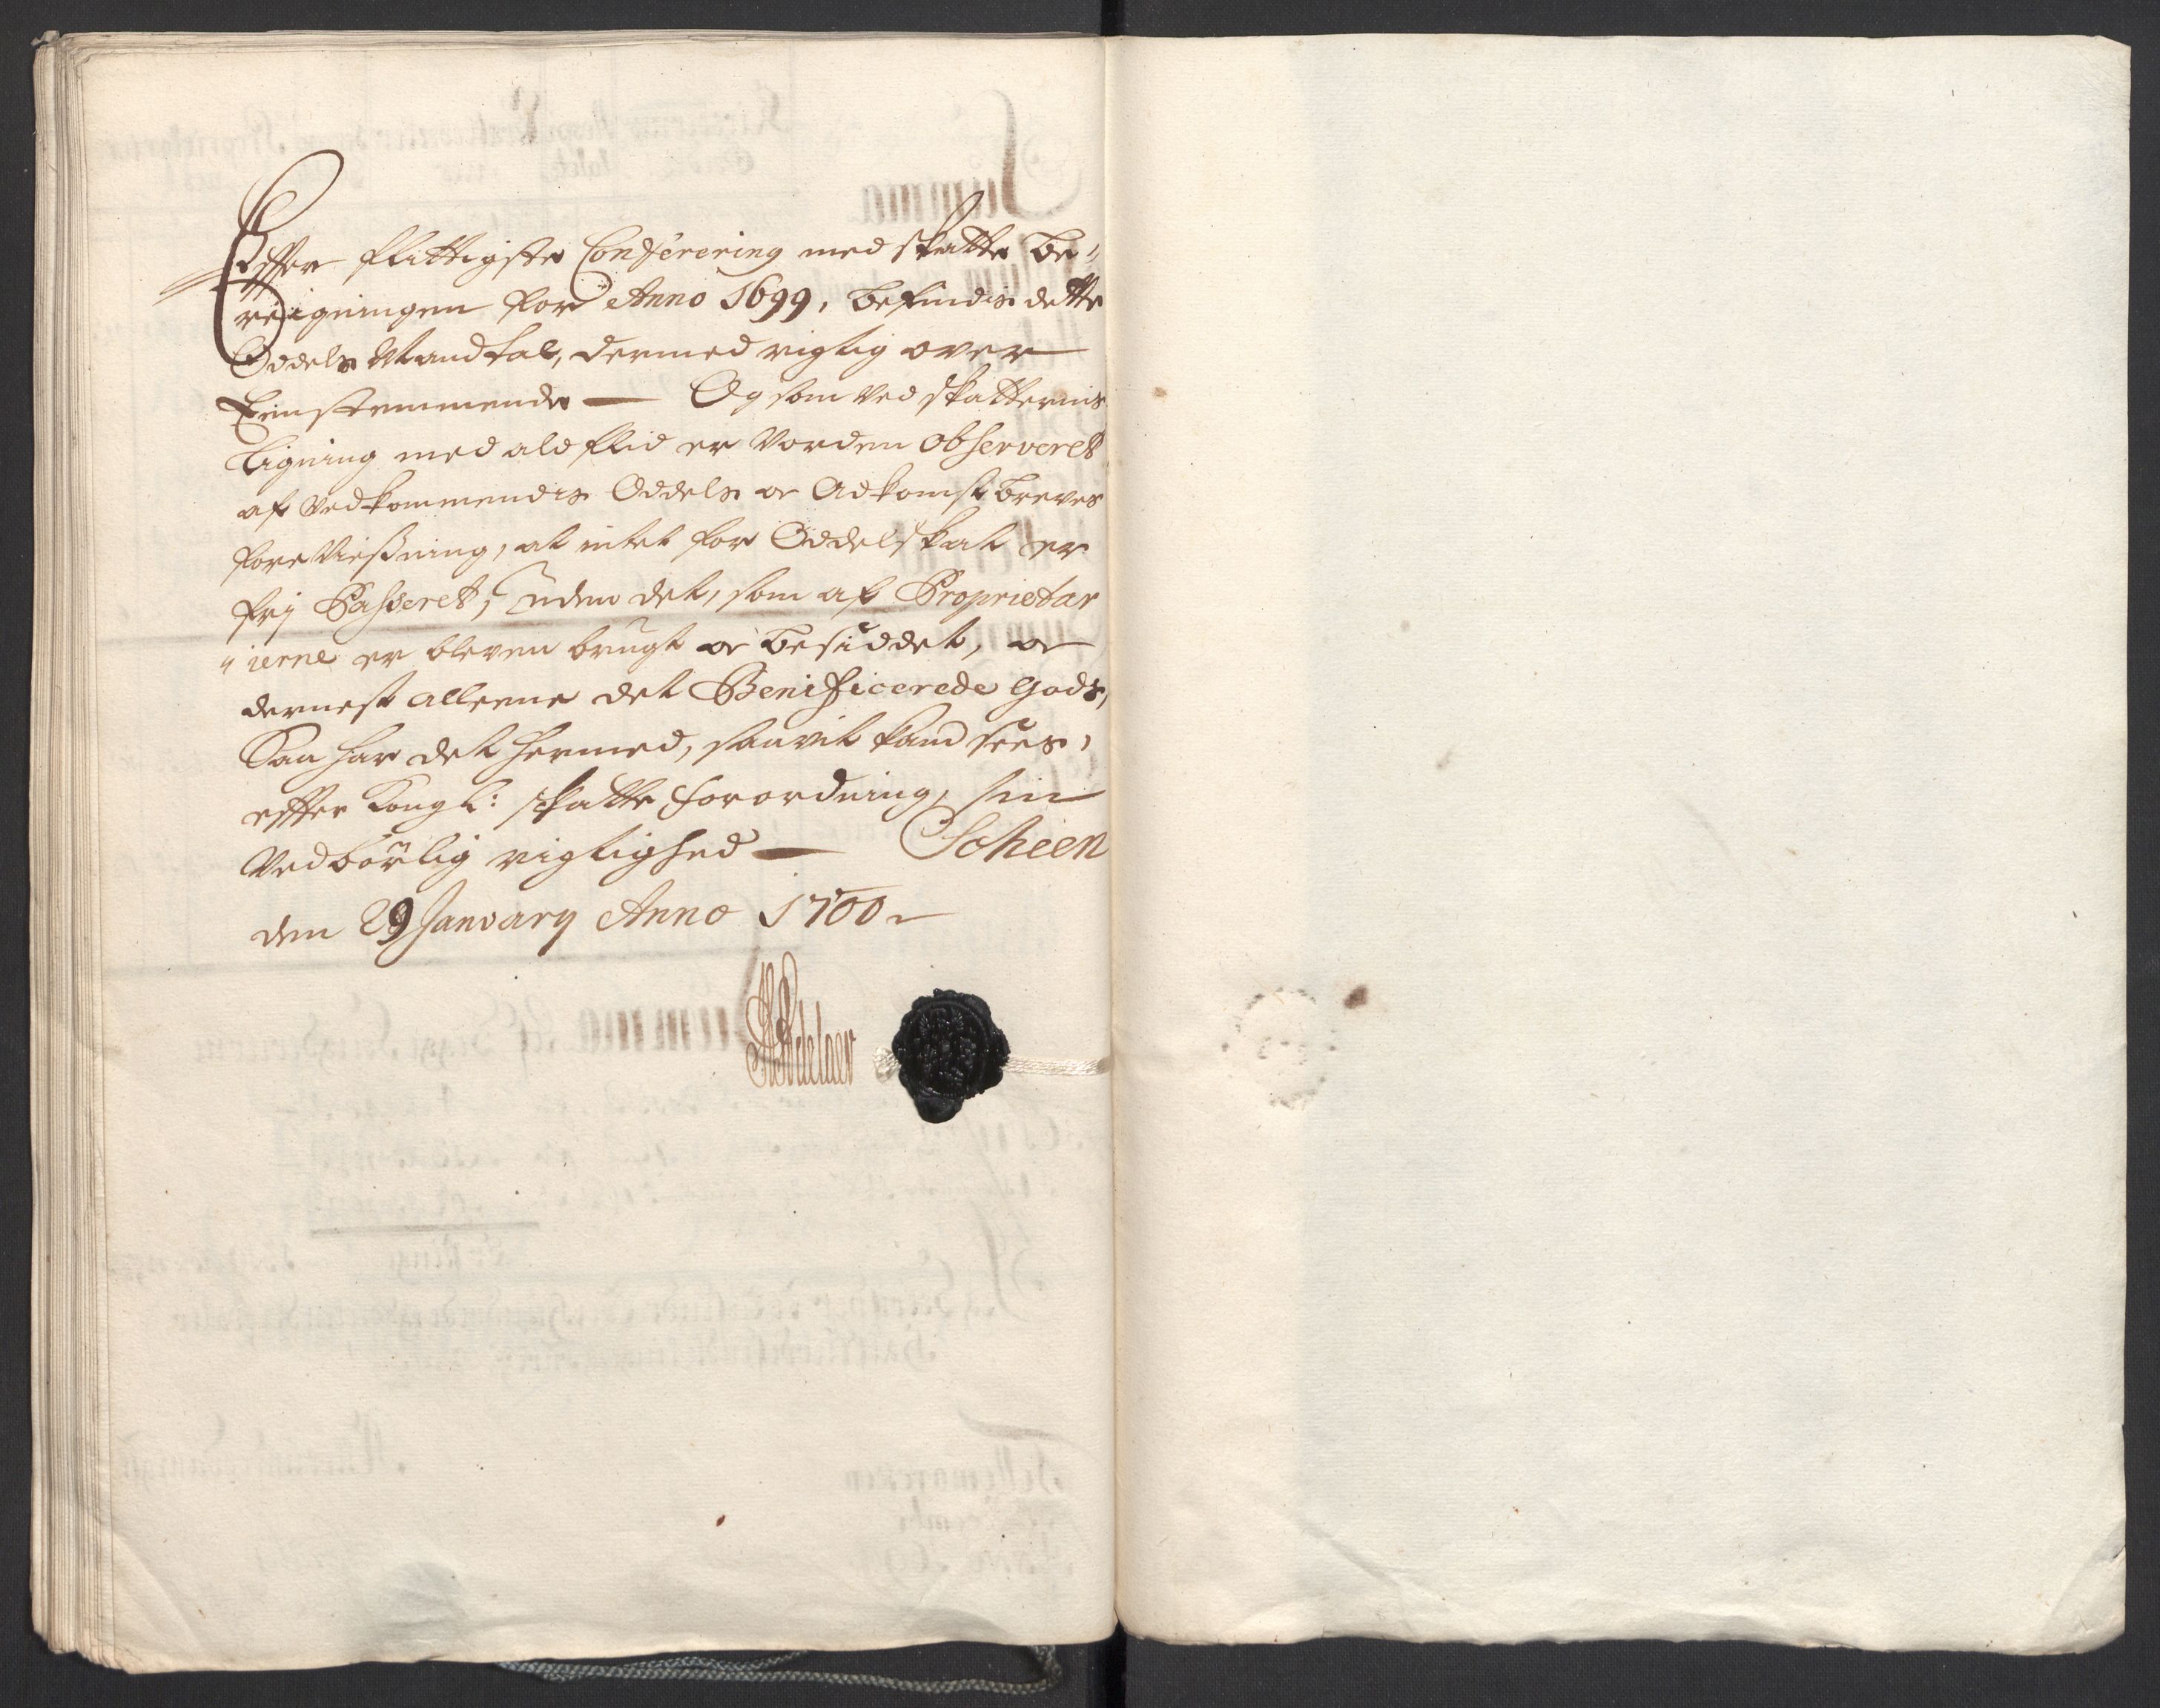 Effter flittigste Conferering med skatte be-
reigningen for Anno 1699, befindis dette
Oddels Mandtal, dermed rigtig over
Eenstemmende — Og som ved skatternis
Ligning med ald flid er vorden observeret
af vedkommendis Oddels og Adkomst breves
foreviisning, at intet for Oddelskat er
frj Passeret, uden det, som af Proprietar
ierne er bleven brugt og besiddet, og
dernest alleene det Benificerede gods,
Saa har det hermed, saavit kand sees,
effter Kongl: skatte forordning, sin
vedbörlig rigtighed — Scheen
den 29 January Anno 1700
Adelaer